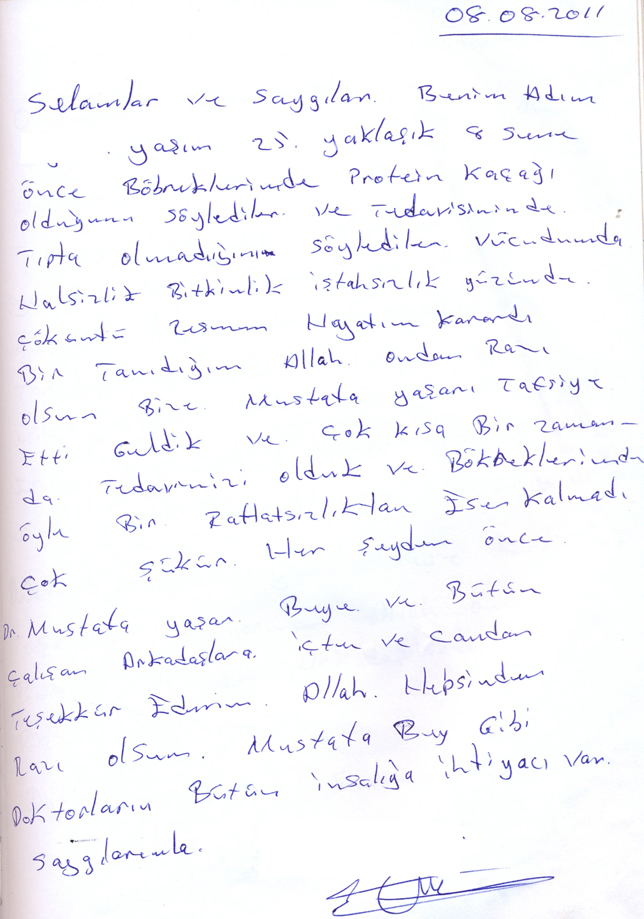 08.08.2011
Selamlar ve saygılar. Benim Adım
yaşım 25. yaklaşık 8 sene
önce Böbreklerimde Protein Kaçağı
olduğunu söylediler. ve Tedavisininde.
Tıpta olmadığını söylediler. vücudumda
Halsizlik Bitkinlik iştahsızlık yüzünde.
çöküntü Hayatım Karardı
Bir Tanıdığım Allah. ondan Razı
olsun Bize. Mustafa yaşarı Tafsiye
Etti Geldik ve. çok kısa Bir zaman-
da. Tedavimizi olduk ve. Bökbeklerimde
öyle Bir Rahatsızlıktan Eser Kalmadı
çok şükür. Her şeyden önce.
Dr. Mustafa yaşar. Beye. ve. Bütün
çalışan Arkadaşlara. içten ve candan
Teşekkür Ederim. Allah. Hepsinden
Razı olsun. Mustafa Bey Gibi
Doktorların Bütün insalığa ihtiyacı var.
saygılarımla.